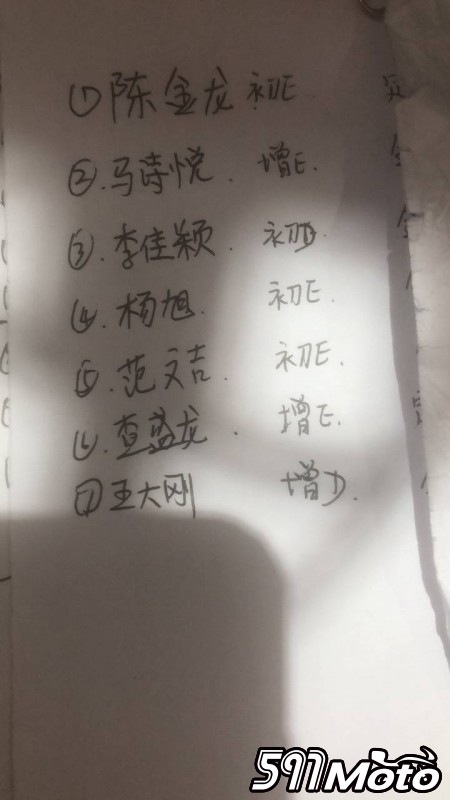 ① 陈金龙 初E
② 马诗悦. 增E.
③ 李佳颖. 初D.
④ 杨旭. 初E.
⑤ 范文吉. 初E.
⑥ 查盛龙. 增E.
⑦ 王大刚 增D.
591Moto